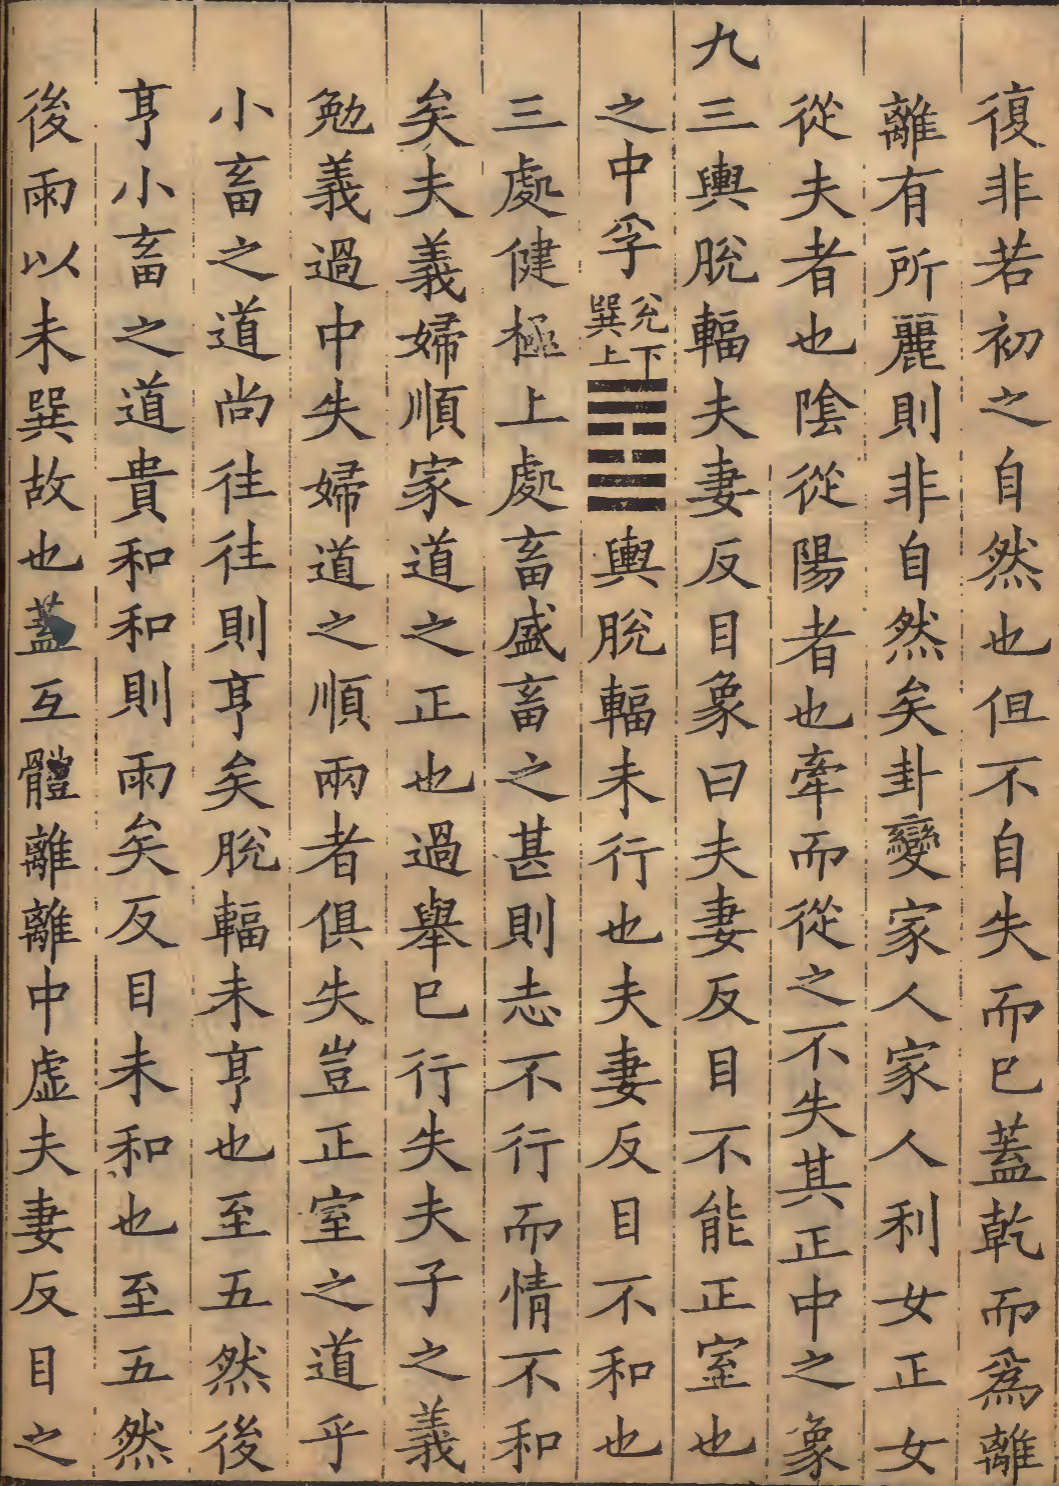 復非若初之自然也但不自失而已蓋乾而為離
離有所麗則非自然矣卦變家人家人利女正女
從夫者也陰從陽者也牽而從之不失其正中之象
九三輿脫輻夫妻反目象曰夫妻反目不能正室也
之中孚兊下巽上輿脫輻未行也夫妻反目不和也
三處健極上處畜盛畜之甚則志不行而情不和
矣夫義婦順家道之正也過舉已行失夫子之義
勉義過中失婦道之順兩者俱失豈正室之道乎
小畜之道尚往往則亨矣脫輻未亨也至五然後
亨小畜之道貴和和則雨矣反目未和也至五然
後雨以未巽故也蓋互體離離中虛夫妻反目之